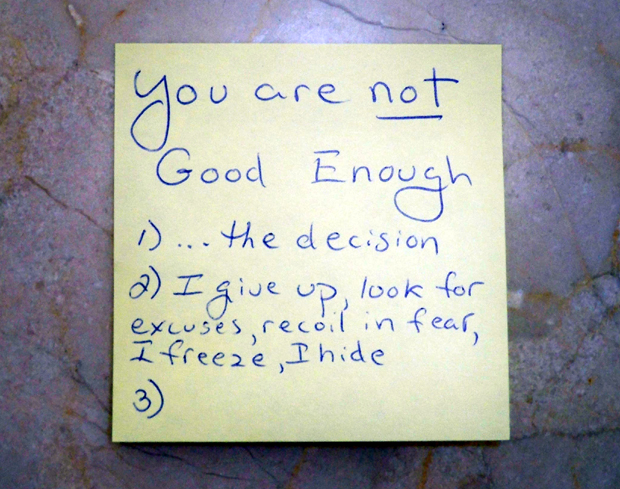 You are not
Good Enough
1) ... the decision
2) I give up, look for
excuses, recoil in fear,
I freeze, I hide
3)